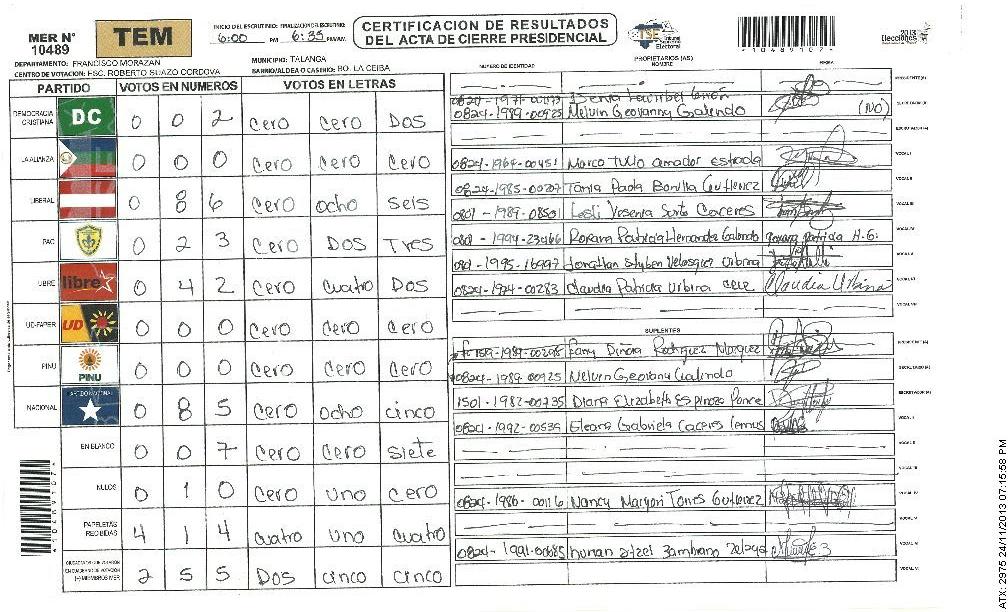 MER N° 10489
TEM
INICIO DEL ESCRUTINIO: 6:00 PM FINALIZACION DEL ESCRUTINIO: 6:35 PM/AM
CERTIFICACION DE RESULTADOS
DEL ACTA DE CIERRE PRESIDENCIAL
TSE Tribunal Supremo Electoral
*10489107*
2013
Elecciones
DEPARTAMENTO: FRANCISCO MORAZAN
MUNICIPIO: TALANGA
CENTRO DE VOTACION: ESC. ROBERTO SUAZO CORDOVA
BARRIO/ALDEA O CASERIO: BO. LA CEIBA
PROPIETARIOS (AS)
NUMERO DE IDENTIDAD NOMBRE FIRMA
PARTIDO VOTOS EN NUMEROS VOTOS EN LETRAS
DEMOCRACIA CRISTIANA DC 0 0 2 Cero Cero Dos
LA ALIANZA 0 0 0 Cero Cero Cero
LIBERAL 0 8 6 Cero ocho seis
PAC 0 2 3 Cero Dos Tres
LIBRE libre 0 4 2 Cero Cuatro Dos
UD-FAPER UD 0 0 0 Cero Cero Cero
PINU PINU 0 0 0 Cero Cero Cero
NACIONAL PARTIDO NACIONAL 0 8 5 Cero ocho cinco
EN BLANCO 0 0 7 Cero Cero siete
NULOS 0 1 0 Cero uno cero
PAPELETAS RECIBIDAS 4 1 4 Cuatro uno cuatro
CIUDADANOS QUE VOTARON EN CUADERNO DE VOTACION (+) MIEMBROS MER 2 5 5 Dos cinco cinco
PRESIDENTE(A)
0824-1989-00925 Melvin Geovanny Galindo (NO) SECRETARIO(A)
ESCRUTADOR(A)
0824-1964-00451 Marco Tulio amador estrada VOCAL I
0824-1985-00207 Tania Paola Bonilla Gutierrez VOCAL II
0801-1989-0850 Lesli Yesenia Caceres VOCAL III
1994-23466 Rosana Patricia Hernandez Galindo Rosana patricia H.G. VOCAL IV
0801-1995-16997 Jonathan Velasquez Urbina VOCAL V
0824-1974-00283 Claudia Patricia Urbina Claudia Urbina VOCAL VI
VOCAL VII
SUPLENTES
1519-1989-00298 Fany Dinora Rodriguez Marquez PRESIDENTE(A)
0824-1989-00925 Melvin Geovany Galindo SECRETARIO(A)
1501-1982-00735 Diana Elizabeth Espinoza Ponce ESCRUTADOR(A)
0824-1992-00539 Eleana Gabriela Caceres Lemus VOCAL I
VOCAL II
VOCAL III
0824-1986-00116 Nancy Maryori Torres Gutierrez VOCAL IV
VOCAL V
0824-1991-00685 Zambrano Zelaya VOCAL VI
*10489107*
ATX: 2975 24/11/2013 07:15:58 PM